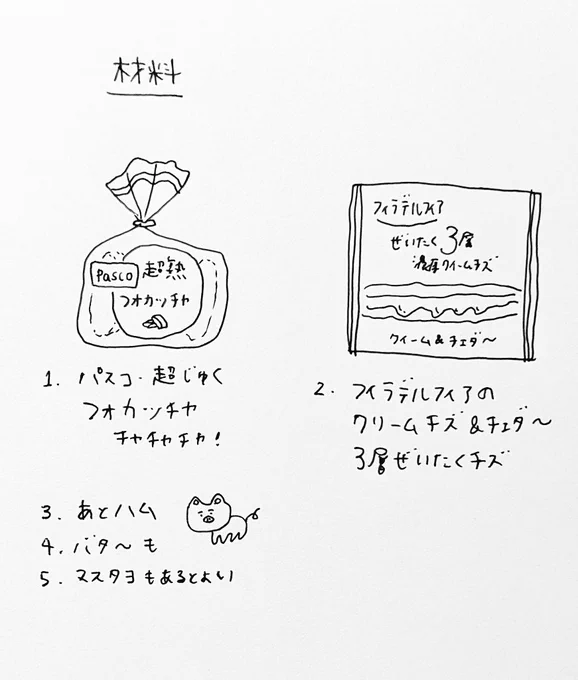 材料
Pasco 超熟
フォカッチャ
フィラデルフィア
ぜいたく3層
濃厚クリームチズ
クィーム&チェダ〜
1. パスコ・超じゅく
フォカッチャ
チャチャチャ!
2. フィラデルフィアの
クリームチズ&チェダ〜
3層ぜいたくチズ
3. あとハム
4. バタ〜も
5. マスタヨもあるとよい